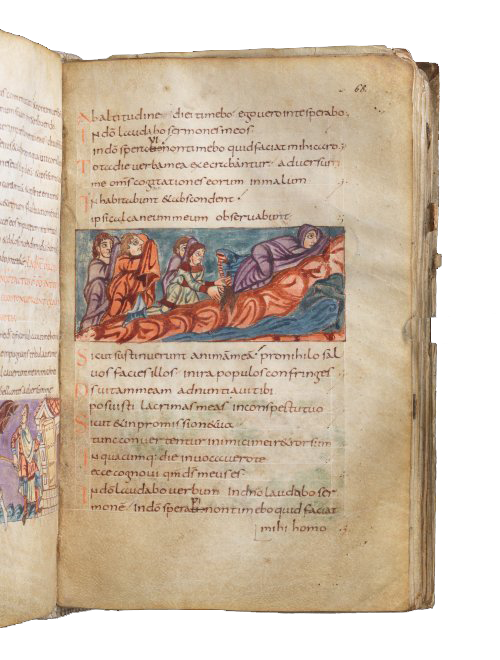 68.
Abaltitudine diei timebo ego vero inte sperabo.
In dō laudabo sermones meos
in dō speravi non timebo quid faciat mihi caro.
Tota die verba mea execrabantur adversum
me om̄s cogitationes eorum in malum
Inhabitabunt & abscondent
ipsi calcaneum meum observabunt
Sicut sustinuerunt animā meā pro nihilo sal
vos facies illos in ira populos confringes
Ds vitam meam adnuntiavi tibi
posuisti lacrimas meas in conspectu tuo
sicut & in promissione tua
tunc convertentur inimici mei retrorsum
In quacumq; die invocavero te
ecce cognovi qm̄ ds meus es
In dō laudabo verbum in dn̄o laudabo ser
monē in dō speravi non timebo quid faciat
mihi homo